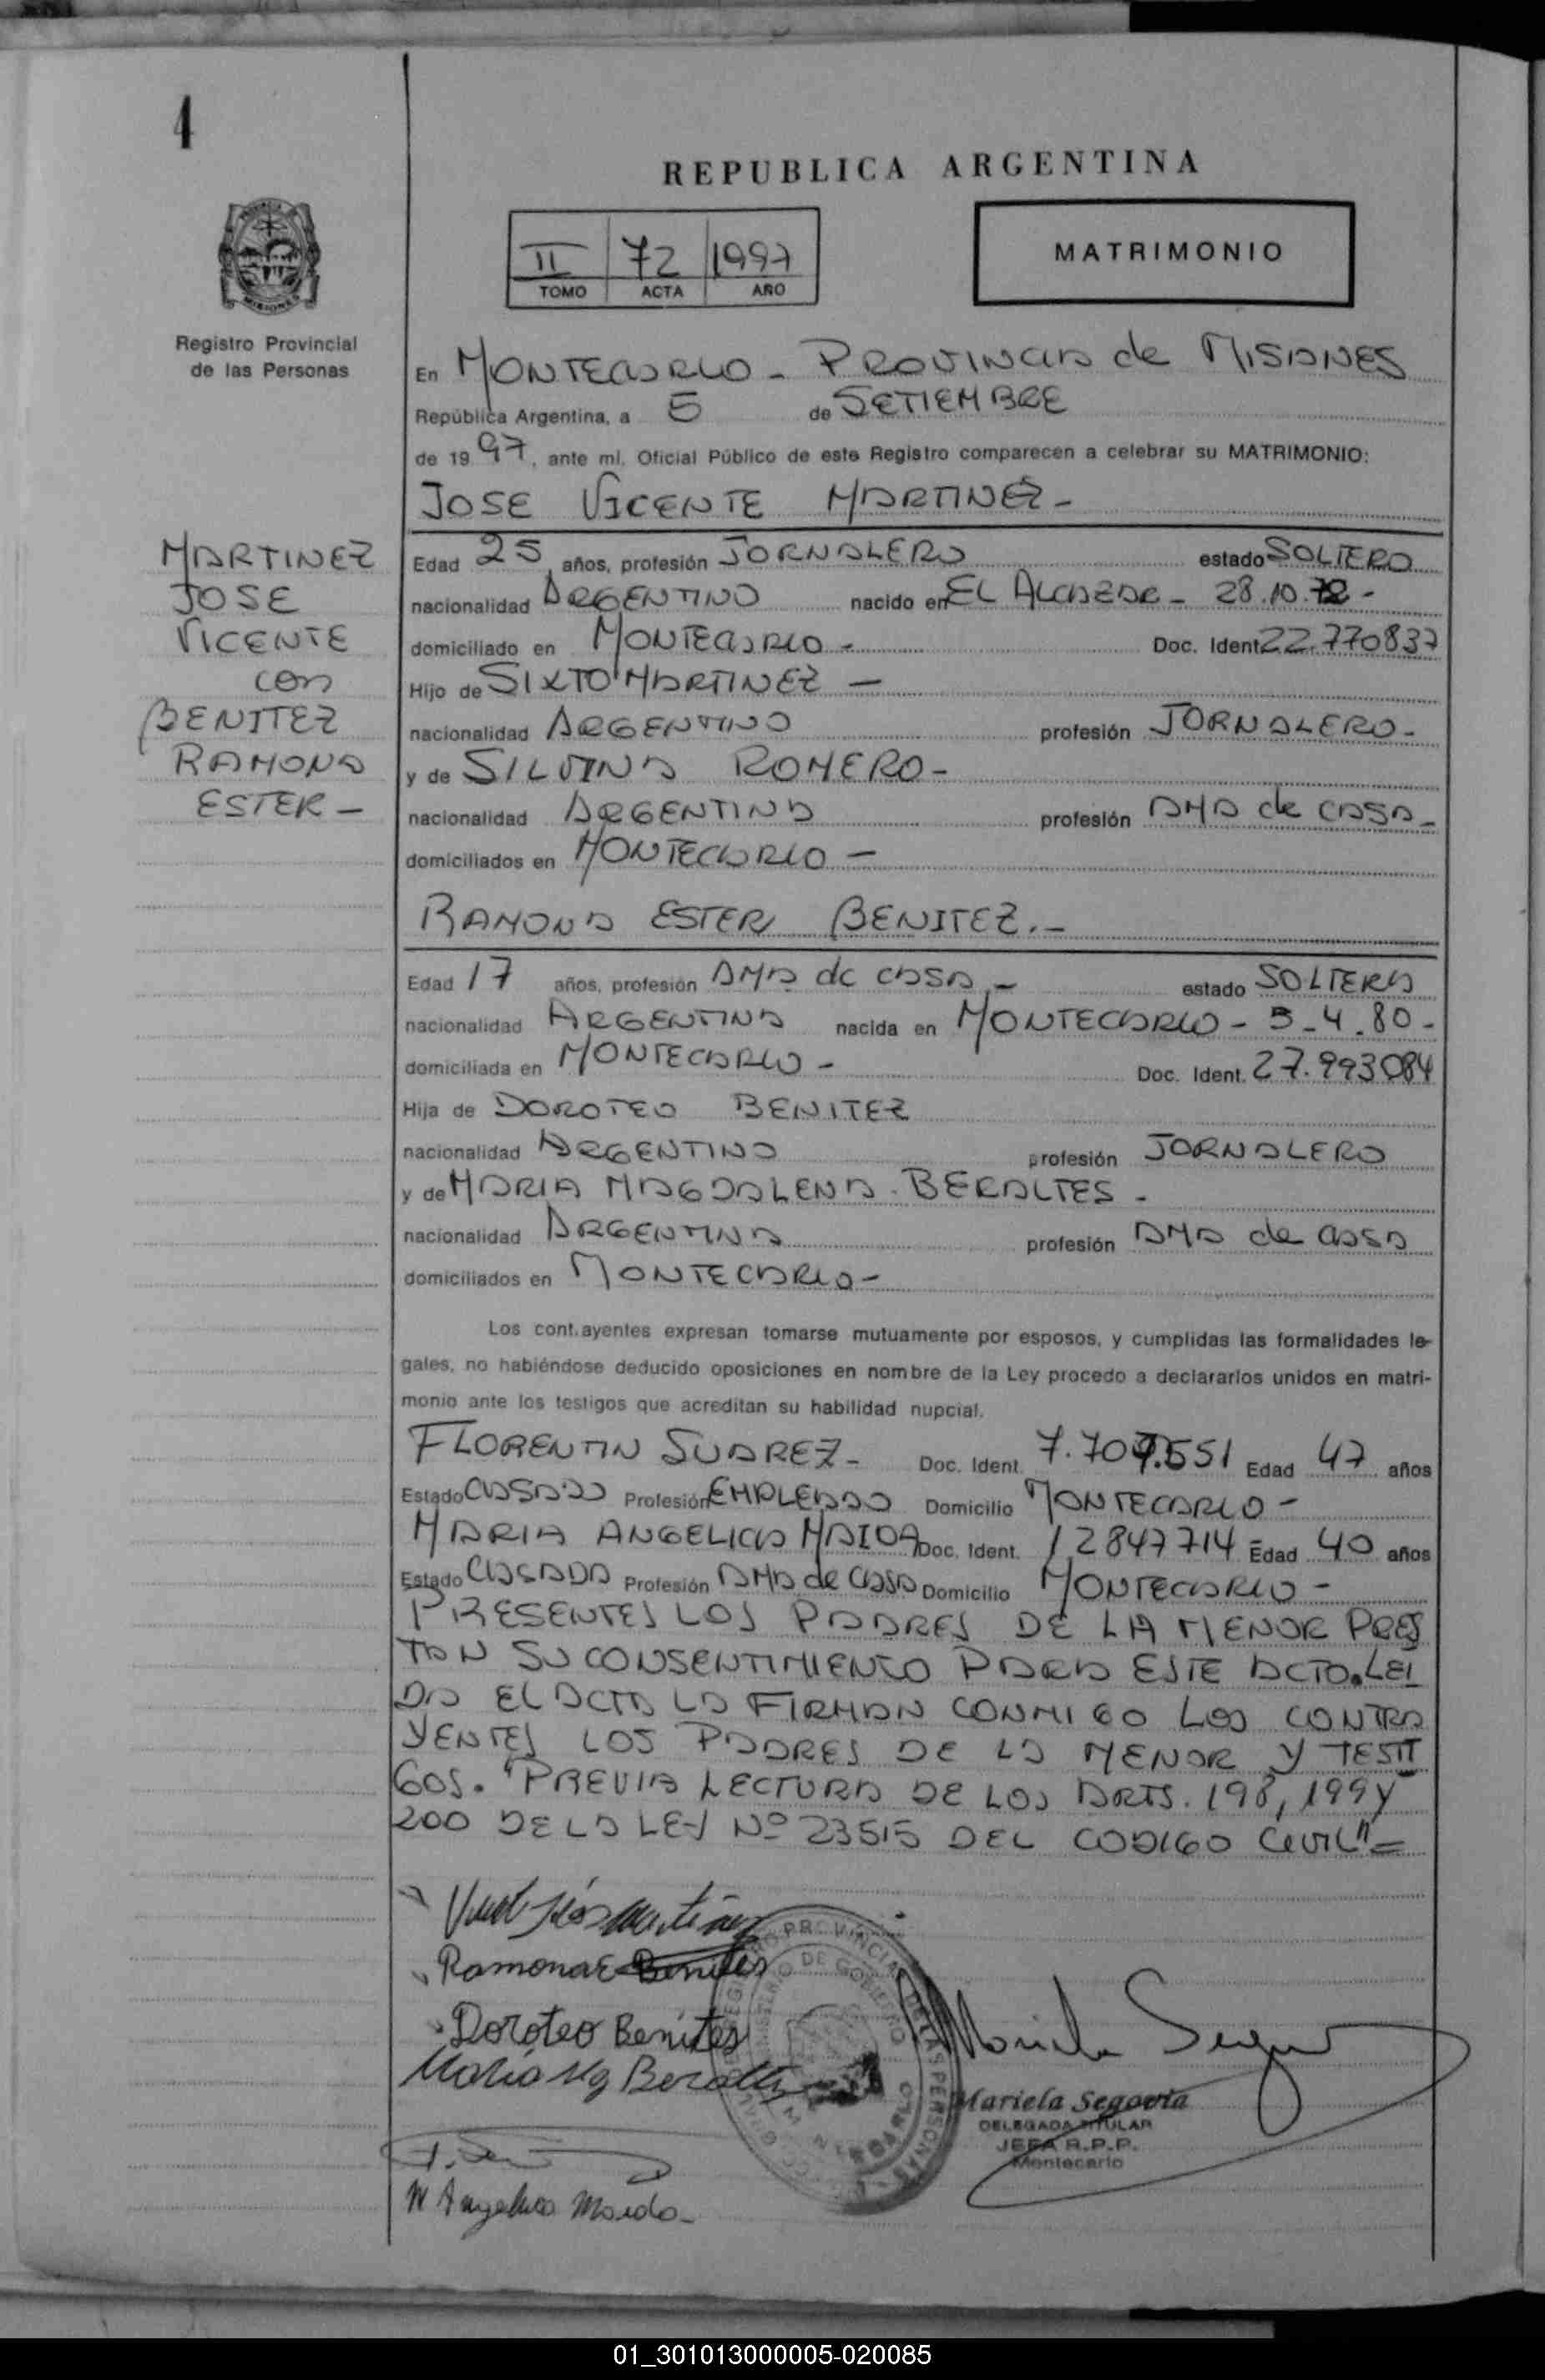 4
REPUBLICA ARGENTINA
II 72 1997
TOMO ACTA AÑO
MATRIMONIO
Registro Provincial
de las Personas
En MONTECARLO - PROVINCIA de MISIONES
República Argentina, a 5 de SETIEMBRE
de 19 97, ante mí, Oficial Público de este Registro comparecen a celebrar su MATRIMONIO:
JOSE VICENTE MARTINEZ -
MARTINEZ
JOSE
VICENTE
con
BENITEZ
RAMONA
ESTER -
Edad 25 años, profesión JORNALERO estado SOLTERO
nacionalidad ARGENTINO nacido en EL ALCAZAR - 28.10.72 -
domiciliado en MONTECARLO - Doc. Ident. 22.770837
Hijo de SIXTO MARTINEZ -
nacionalidad ARGENTINO profesión JORNALERO -
y de SILVINA ROMERO -
nacionalidad ARGENTINA profesión AMA de CASA -
domiciliados en MONTECARLO -
RAMONA ESTER BENITEZ. -
Edad 17 años, profesión AMA de CASA - estado SOLTERA
nacionalidad ARGENTINA nacida en MONTECARLO - 5-4.80 -
domiciliada en MONTECARLO - Doc. Ident. 27.993084
Hija de DOROTEO BENITEZ
nacionalidad ARGENTINO profesión JORNALERO
y de MARIA MAGDALENA BERALTES -
nacionalidad ARGENTINA profesión AMA de CASA
domiciliados en MONTECARLO -
Los cont.ayentes expresan tomarse mutuamente por esposos, y cumplidas las formalidades le-
gales, no habiéndose deducido oposiciones en nombre de la Ley procedo a declararlos unidos en matri-
monio ante los testigos que acreditan su habilidad nupcial.
FLORENTIN SUAREZ - Doc. Ident. 7.707.551 Edad 47 años
Estado CASADO Profesión EMPLEADO Domicilio MONTECARLO -
MARIA ANGELICA MAIDA Doc. Ident. 12847714 Edad 40 años
Estado CASADA Profesión AMA de CASA Domicilio MONTECARLO -
PRESENTES LOS PADRES DE LA MENOR PRES
TAN SU CONSENTIMIENTO PARA ESTE ACTO. LEI
DA EL ACTA LA FIRMAN CONMIGO LOS CONTRA
YENTES LOS PADRES DE LA MENOR Y TESTI
GOS. "PREVIA LECTURA DE LOS ARTS. 198, 199 Y
200 DE LA LEY Nº 23515 DEL CODIGO CIVIL" =
Ramona E Benites
Doroteo Benites
Maria Mg
Mariela Segovia
DELEGADA TITULAR
JEFA R.P.P.
Montecarlo
M Angelica Maida -
01_301013000005-020085